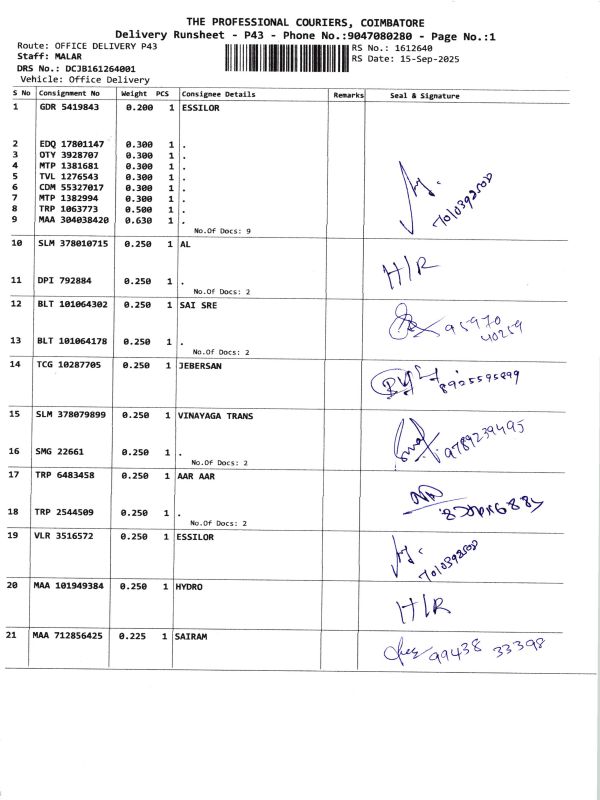 THE PROFESSIONAL COURIERS, COIMBATORE
Delivery Runsheet - P43 - Phone No.:9047080280 - Page No.:1
Route: OFFICE DELIVERY P43
RS No.: 1612640
Staff: MALAR
RS Date: 15-Sep-2025
DRS No.: DCJB161264001
Vehicle: Office Delivery
S No Consignment No Weight PCS Consignee Details Remarks Seal & Signature
1 GDR 5419843 0.200 1 ESSILOR
2 EDQ 17801147 0.300 1 .
3 OTY 3928707 0.300 1 .
4 MTP 1381681 0.300 1 .
5 TVL 1276543 0.300 1 .
6 CDM 55327017 0.300 1 .
7 MTP 1382994 0.300 1 .
8 TRP 1063773 0.500 1 .
9 MAA 304038420 0.630 1 .
No.Of Docs: 9
10 SLM 378010715 0.250 1 AL
H/R
11 DPI 792884 0.250 1 .
No.Of Docs: 2
12 BLT 101064302 0.250 1 SAI SRE
95970
40259
13 BLT 101064178 0.250 1 .
No.Of Docs: 2
14 TCG 10287705 0.250 1 JEBERSAN
8925595899
15 SLM 378079899 0.250 1 VINAYAGA TRANS
9789239495
16 SMG 22661 0.250 1 .
No.Of Docs: 2
17 TRP 6483458 0.250 1 AAR AAR
18 TRP 2544509 0.250 1 .
No.Of Docs: 2
19 VLR 3516572 0.250 1 ESSILOR
20 MAA 101949384 0.250 1 HYDRO
H/R
21 MAA 712856425 0.225 1 SAIRAM
99438 33398